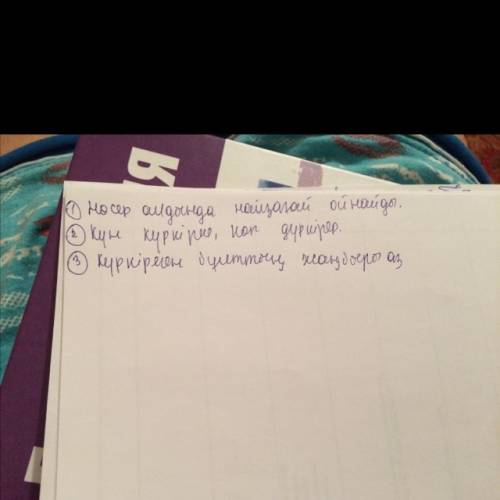 ① Нөсер алдында найзағай ойнайды.
② Күн күркіре, көп дүркірер.
③ Күркіреген бұлттың жаңбыры аз